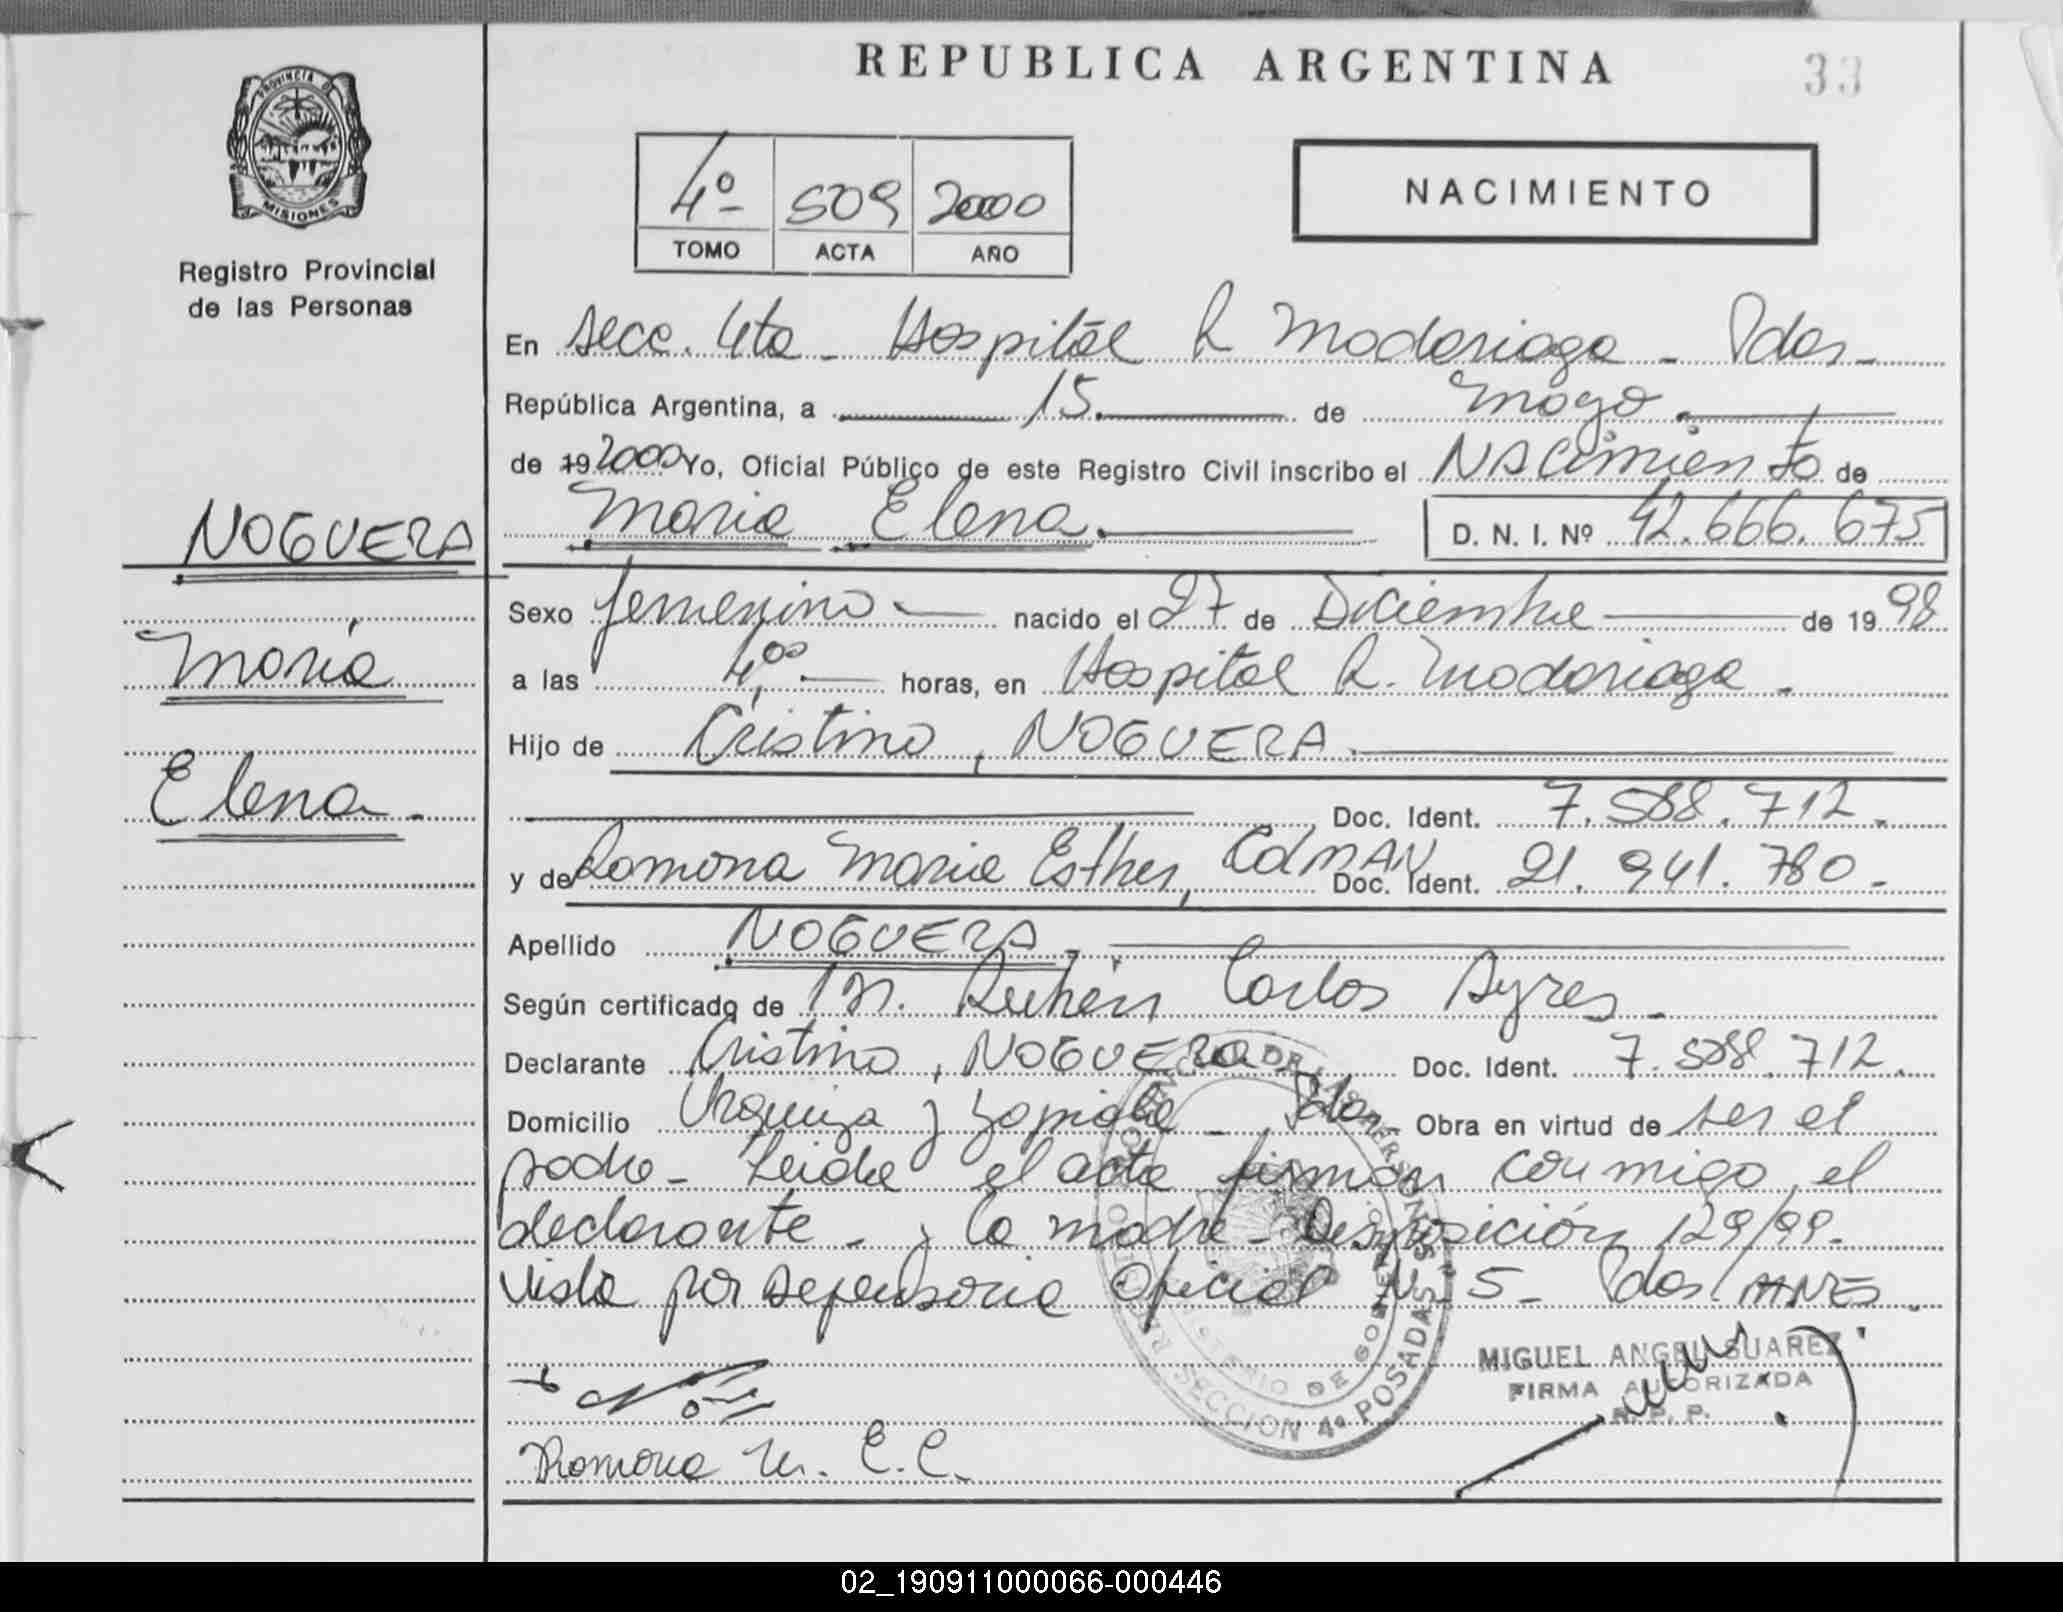 REPUBLICA ARGENTINA
33
PROVINCIA DE
MISIONES
Registro Provincial
de las Personas
4º 509 2000
TOMO ACTA AÑO
NACIMIENTO
En Secc. 4ta - Hospital R Madariaga - Pdas -
República Argentina, a 15 de mayo
de 19 2000 Yo, Oficial Público de este Registro Civil inscribo el NAcimiento de
Maria Elena.
D. N. I. Nº 42.666.675
NOGUERA
María
Elena.
Sexo femenino nacido el 27 de Diciembre de 19 98
a las 4,00 horas, en Hospital R. Madariaga -
Hijo de Cristino, NOGUERA.
Doc. Ident. 7.588.712.
y de Ramona Maria Esther, COLMAN Doc. Ident. 21.941.780.-
Apellido NOGUERA.-
Según certificado de Dr. Rubén Carlos Ayres -
Declarante Cristino, NOGUERA Doc. Ident. 7.588.712.
Domicilio Urquiza y Zapiola - Pdas. Obra en virtud de ser el
padre - Leida el acta firman conmigo, el
declarante - y la madre - Disposición 129/99.
Vista por Defensoria Oficial Nº 5 - Pdas/MNES.
REGISTRO PROVINCIAL DE LAS PERSONAS
MINISTERIO DE GOBIERNO
SECCION 4º POSADAS
MIGUEL ANGEL SUAREZ
FIRMA AUTORIZADA
R. P. P.
Ramona M. E. C.
02_190911000066-000446